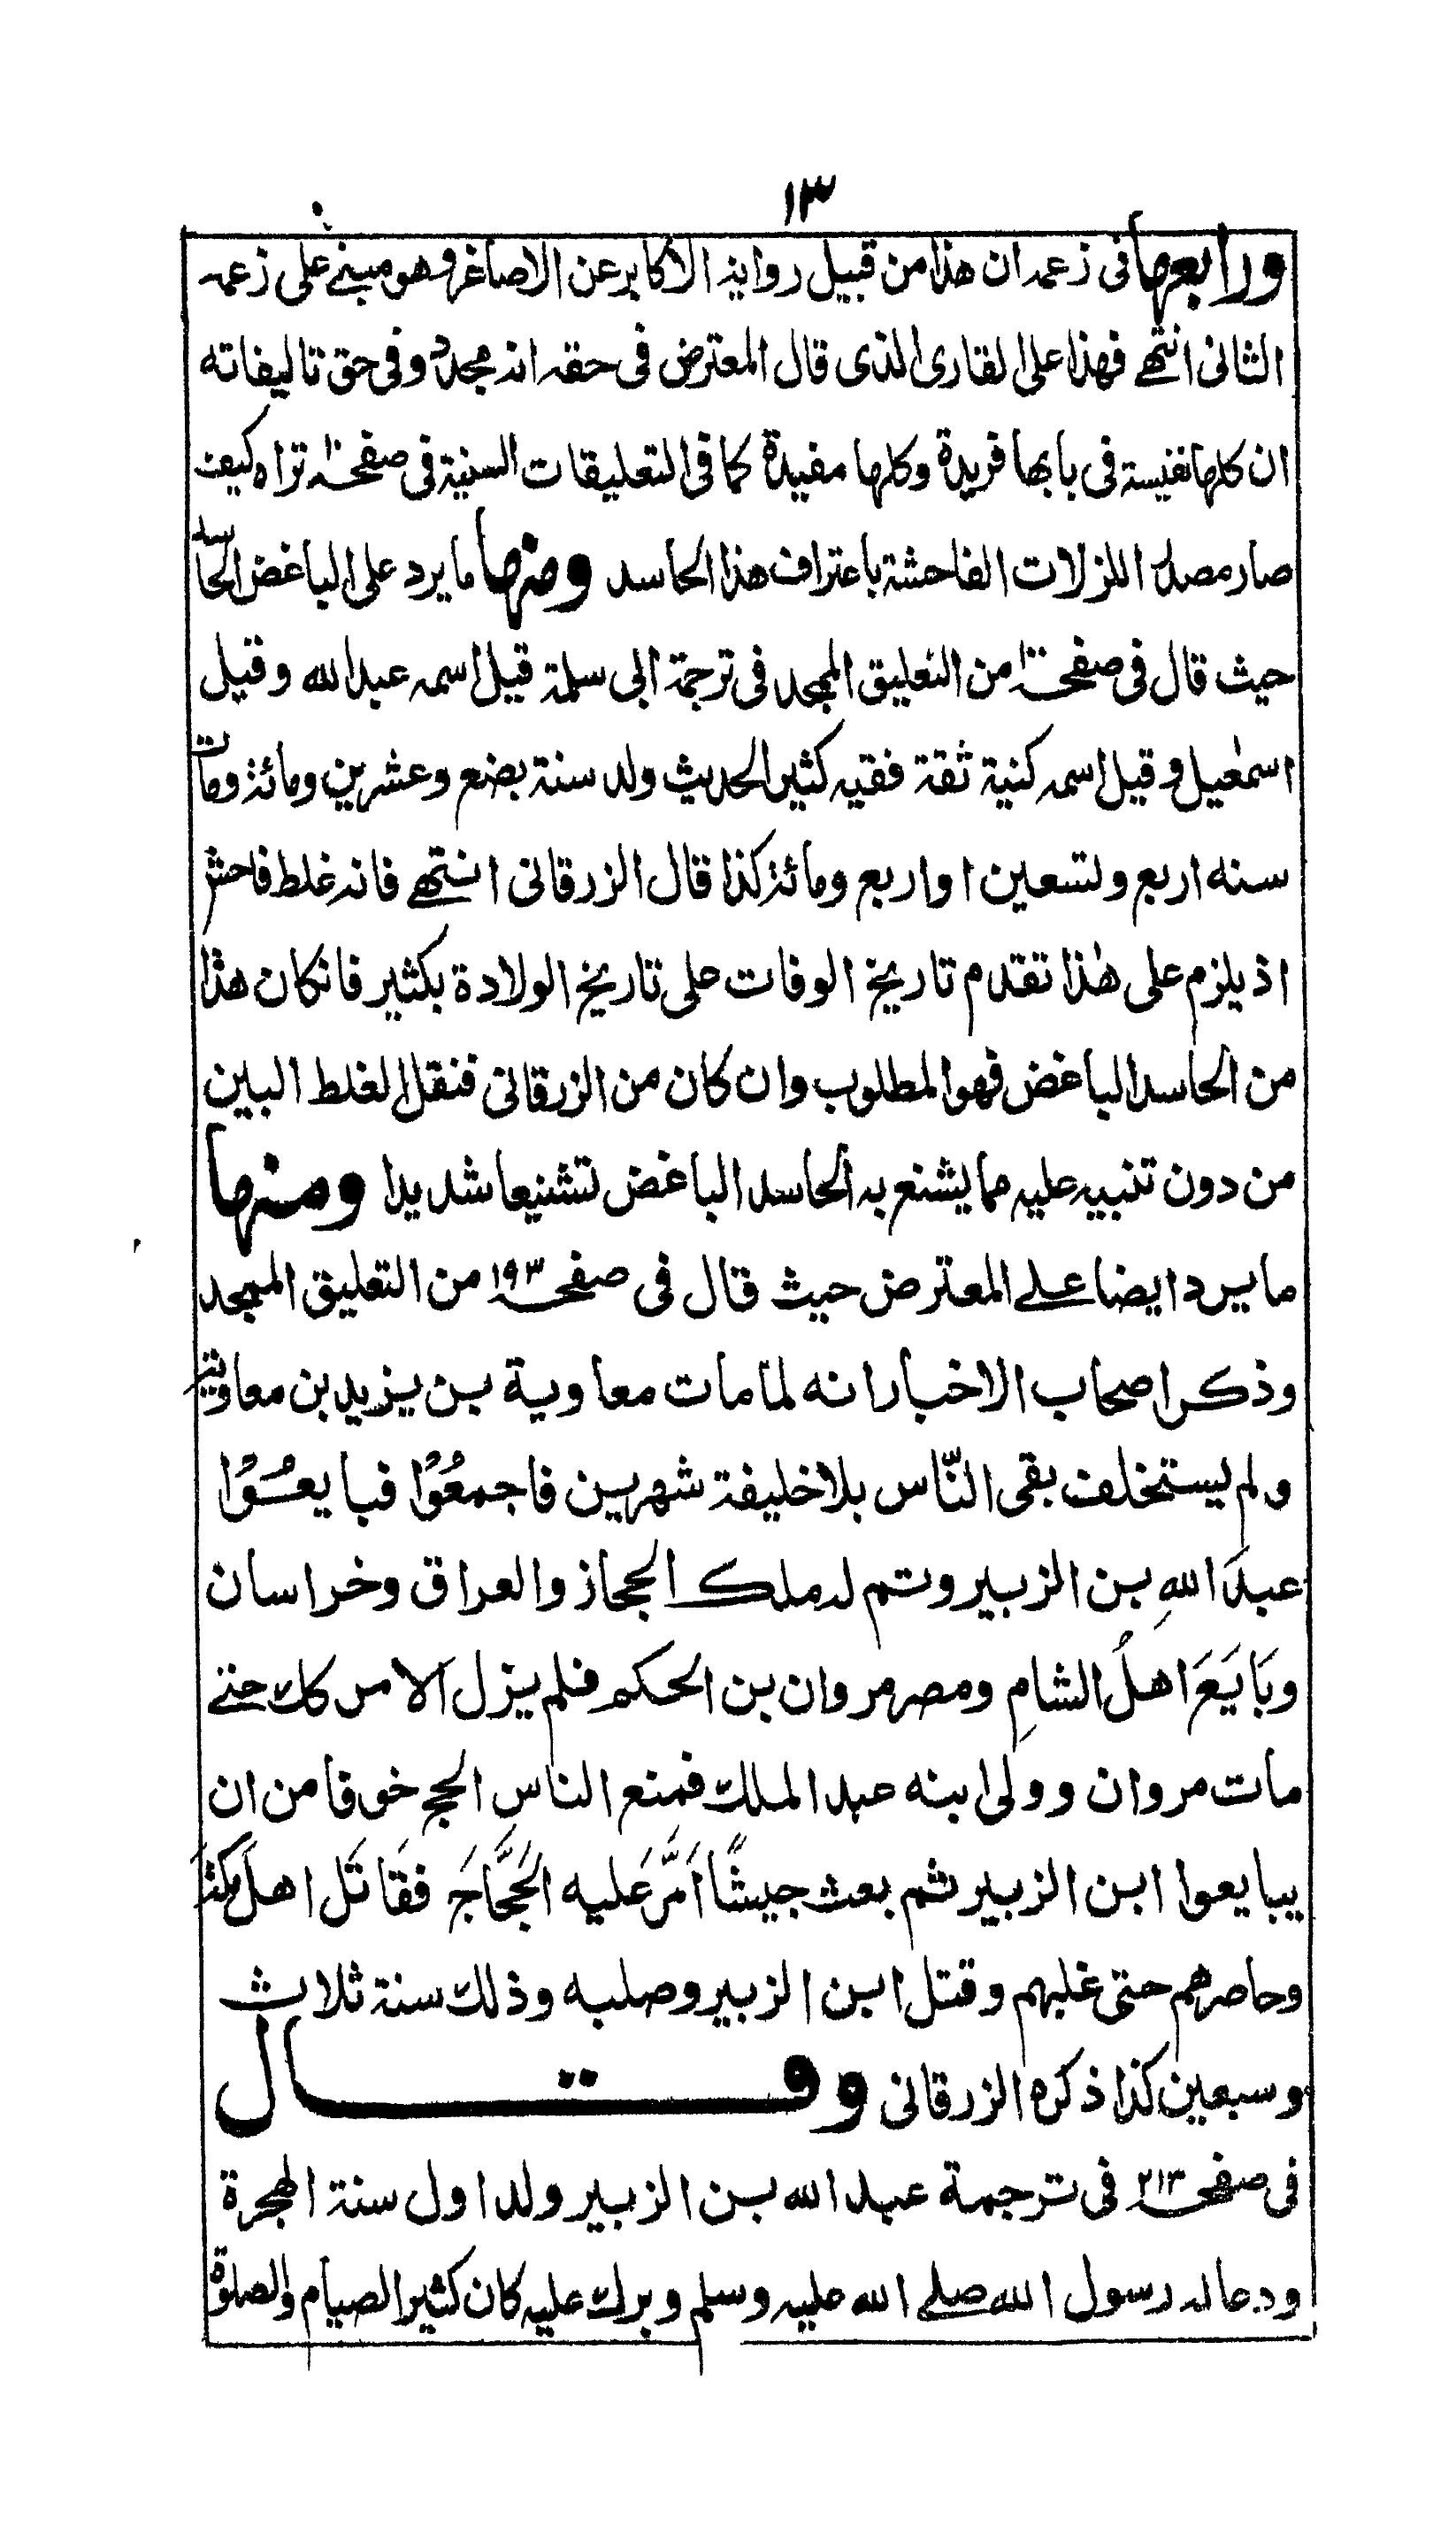 ١٣
ورابعها فى زعمه ان هذا من قبيل رواية الاكابر عن الاصاغر وهو مبنے على زعمه
الثانى انتهے فهذا على القارى الذى قال المعترض فى حقه انه مجدد وفى حق تاليفاته
ان كلها نفيسة فى بابها فريدة وكلها مفيدة كما فى التعليقات السنية فى صفحة تراه كيف
صار مصدر اللزلات الفاحشة باعتراف هذا الحاسد ومنها ما يرد على الباغض الحاسد
حيث قال فى صفحة من التعليق الممجد فى ترجمة ابى سلمة قيل اسمه عبد الله وقيل
اسمٰعيل وقيل اسمه كنية ثقة فقيه كثير الحديث ولد سنة بضع وعشرين ومائة ومات
سنه اربع وتسعين او اربع ومائة كذا قال الزرقانى انتهے فانه غلط فاحش
اذ يلزم على هٰذا تقدم تاريخ الوفات على تاريخ الولادة بكثير فان كان هذا
من الحاسد الباغض فهو المطلوب وان كان من الزرقانى فنقل الغلط البين
من دون تنبيه عليه مما يشنع به الحاسد الباغض تشنيعا شديدا ومنها
ما يرد ايضا علے المعترض حيث قال فى صفحة ١٩٣ من التعليق الممجد
وذكر اصحاب الاخبار انه لما مات معاوية بن يزيد بن معاوية
ولم يستخلف بقى النّاس بلا خليفة شهرين فاجمعُوْا فبايعُوْا
عبدَ اللهِ بن الزبير وتم له ملك الحجاز والعراق وخراسان
وبَايَعَ اهلُ الشامِ ومصر مروان بن الحكم فلم يزل الامر كك حتے
مات مروان وولى ابنه عبد الملك فمنع الناسِ الحج خوفا من ان
يبايعوا ابن الزبير ثم بعث جيشًا اَمَّرَ عَليه الحَجَّاجَ فقَاتَل اهلَ مكة
وحاصرهم حتى غلبهم وقتل ابن الزبير وصلبه وذلك سنة ثلاث
وسبعين كذا ذكره الزرقانى وقال
فى صفحة ٢١٣ فى ترجمة عبد الله بن الزبير ولد اول سنة الهجرة
ودعا له رسول الله صلے الله عليه وسلم وبرك عليه كان كثير الصيام والصلوة